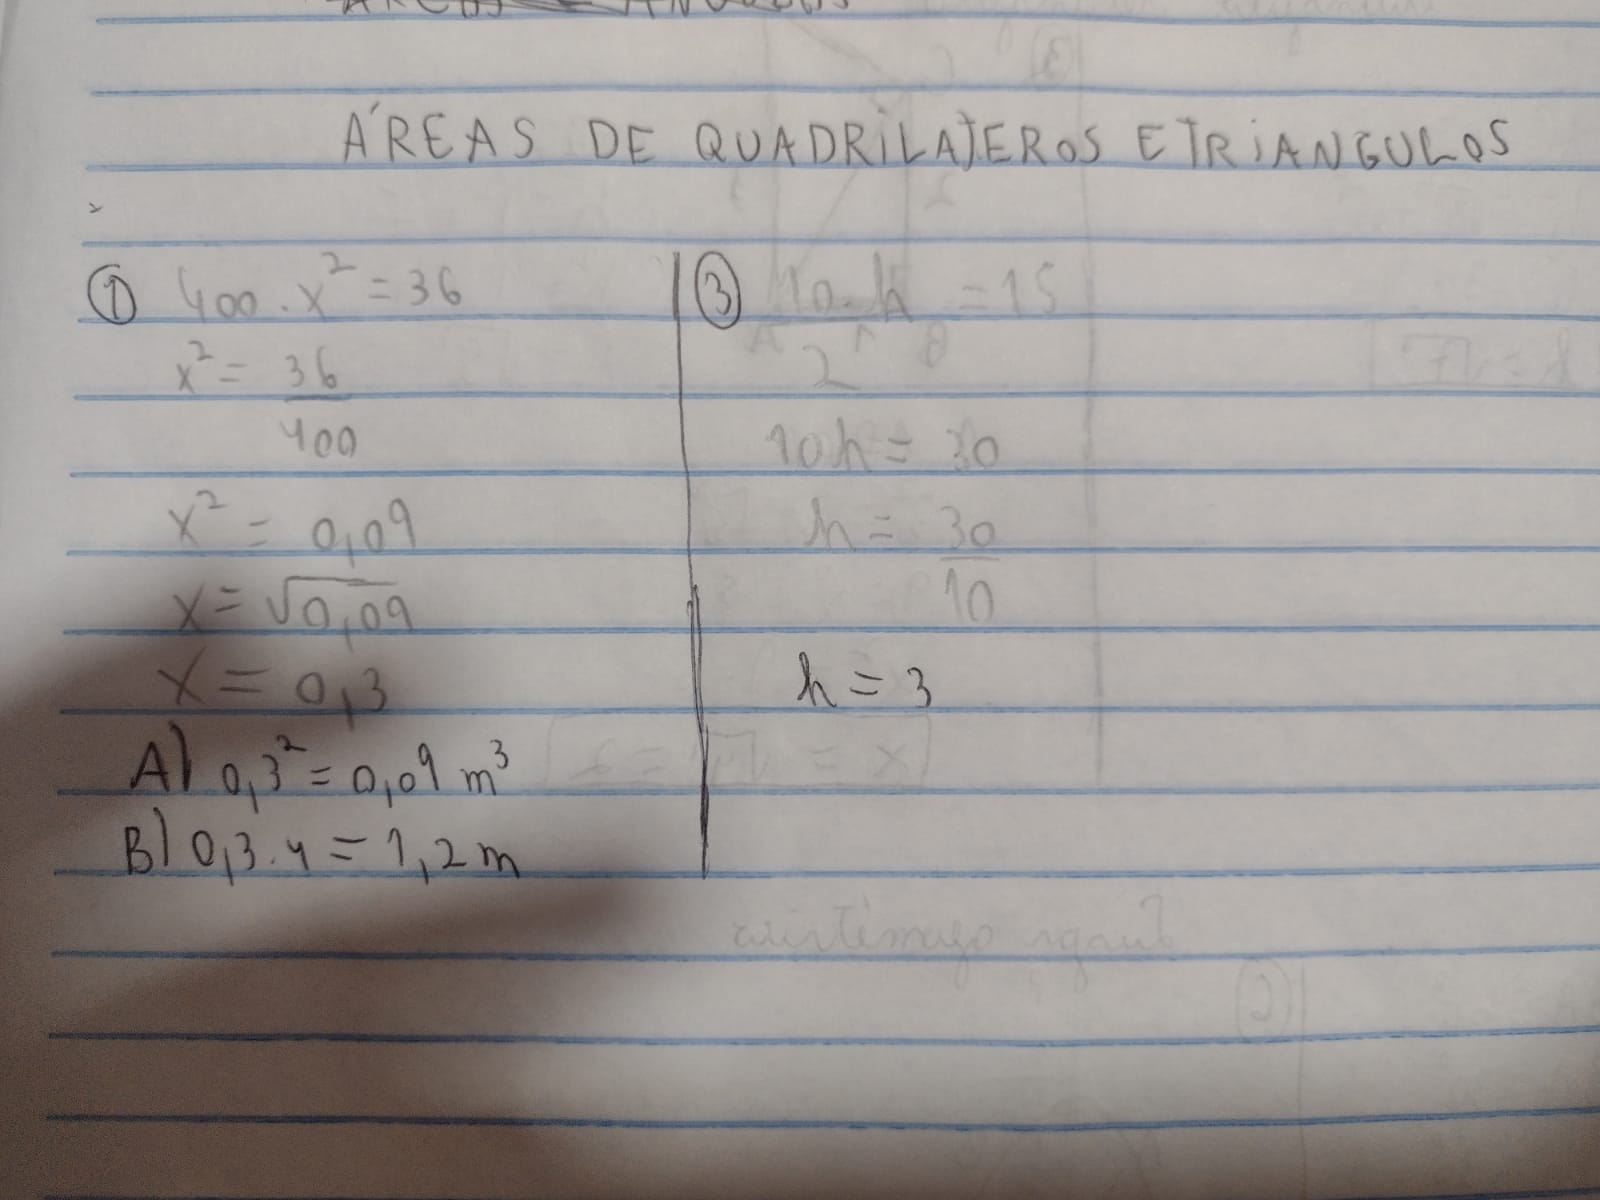 ÁREAS DE QUADRILATEROS E TRIANGULOS
① 400 . x² = 36
x² = 36
400
x² = 0,09
x = √0,09
x = 0,3
A) 0,3² = 0,09 m³
B) 0,3 . 4 = 1,2 m
③ 10 . h = 15
2
10h = 30
h = 30
10
h = 3